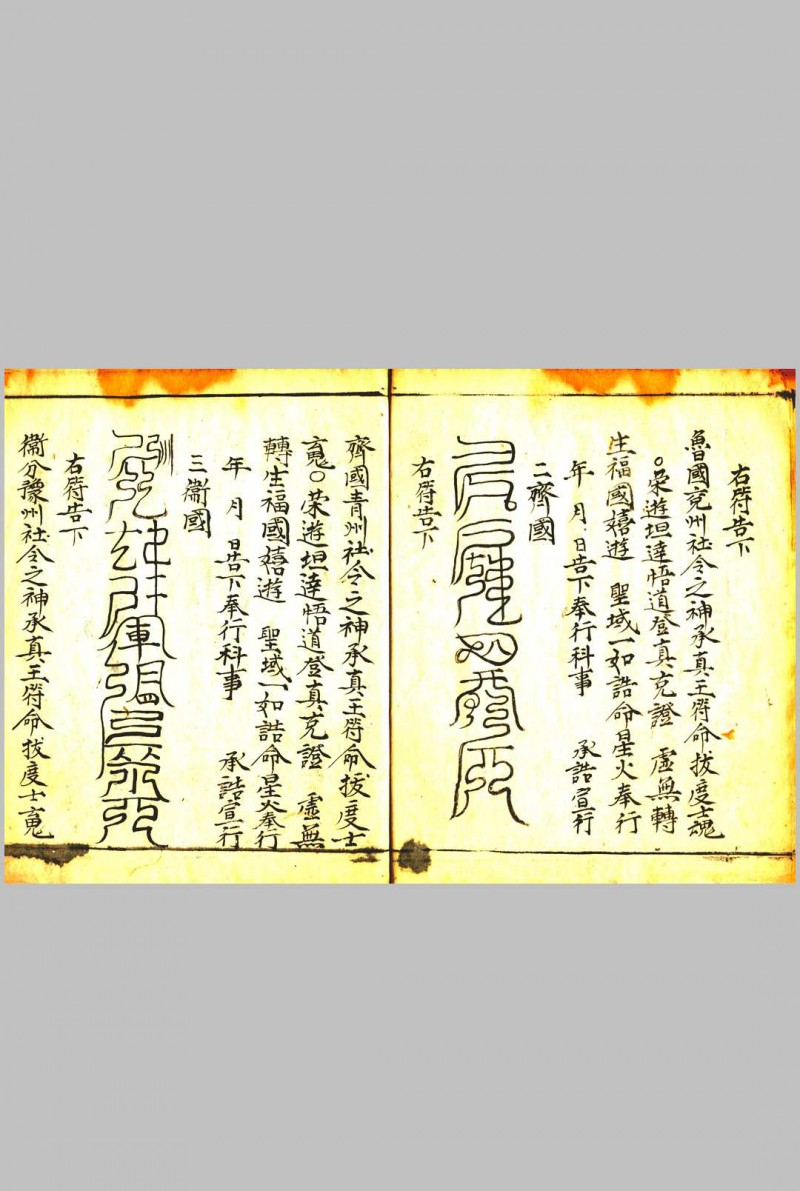 右符告下
魯國兗州社令之神承真王符命拔度士魂
○榮遊坦達悟道登真克證　虛無轉
生福國嬉遊　聖域一如誥命星火奉行
年　月　日告下奉行科事　承誥宣行
二齊國
右符告下
齊國青州社令之神承真王符命拔度士
㝹○榮遊坦達悟道登真克證　虛無
轉生福國嬉遊　聖域一如誥命星火奉行
年　月　日告下奉行科事　承誥宣行
三衛國
右符告下
衞分豫州社令之神承真王符命拔度士㝹